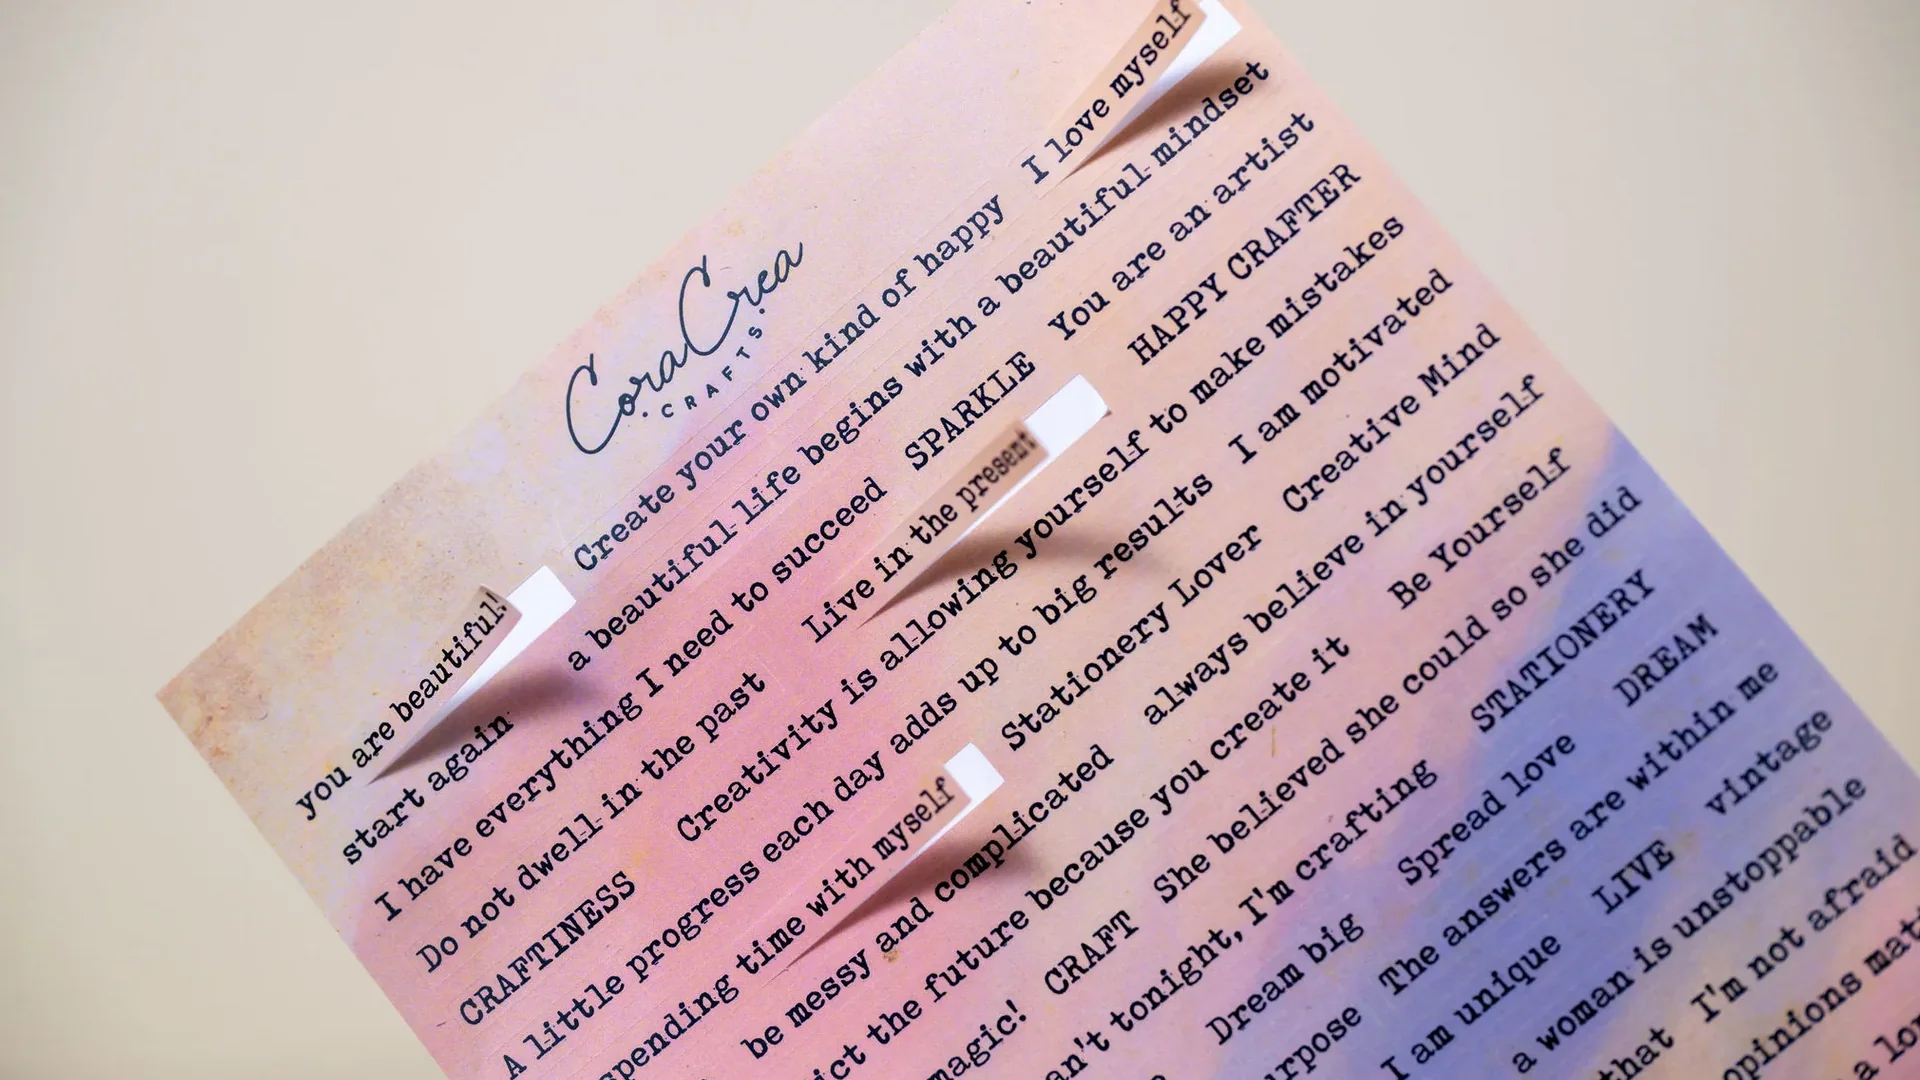 CoraCrea
• CRAFTS •
you are beautiful! Create your own kind of happy I love myself
start again a beautiful life begins with a beautiful mindset
I have everything I need to succeed SPARKLE You are an artist
Do not dwell in the past Live in the present HAPPY CRAFTER
CRAFTINESS Creativity is allowing yourself to make mistakes
A little progress each day adds up to big results I am motivated
spending time with myself Stationery Lover Creative Mind
be messy and complicated always believe in yourself
ict the future because you create it Be Yourself
magic! CRAFT She believed she could so she did
an't tonight, I'm crafting STATIONERY
Dream big Spread love DREAM
rpose The answers are within me
I am unique LIVE vintage
a woman is unstoppable
that I'm not afraid
opinions
a